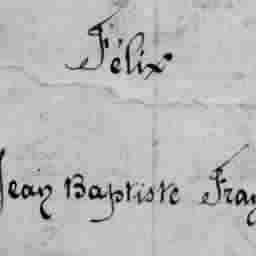 Félix
Jean Baptiste Fran